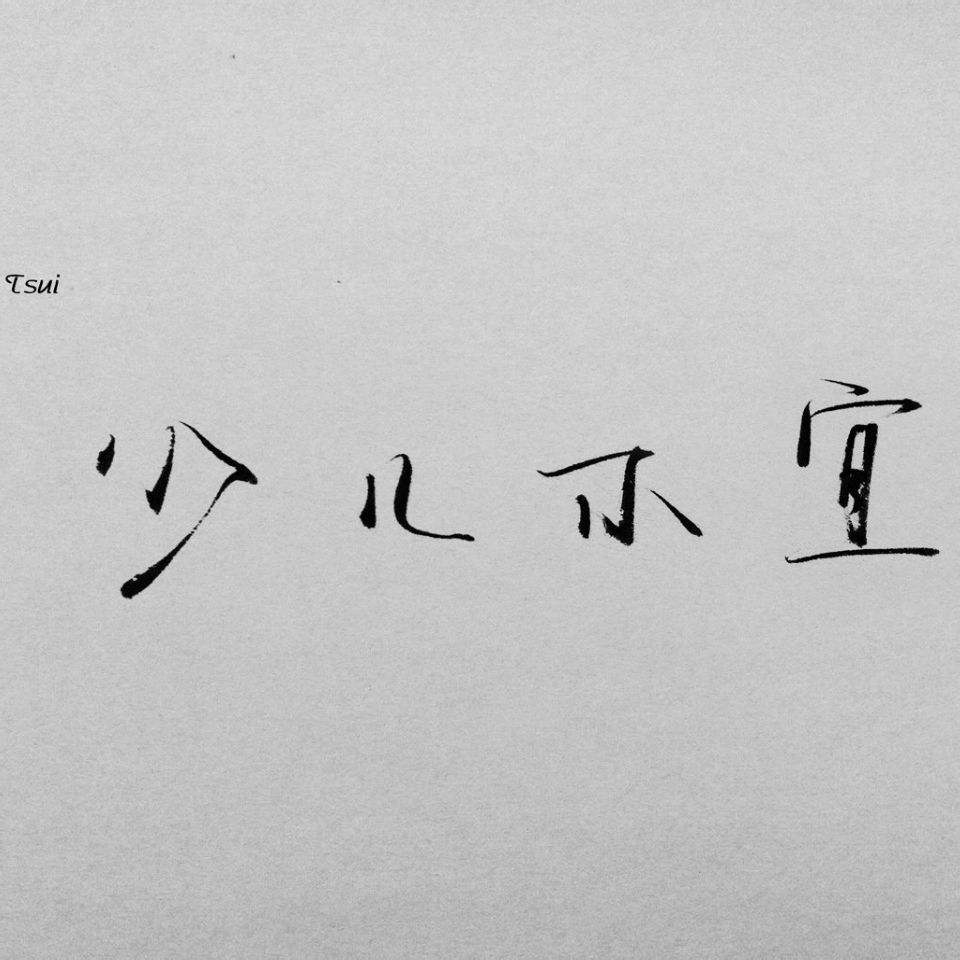 Tsui
少儿不宜